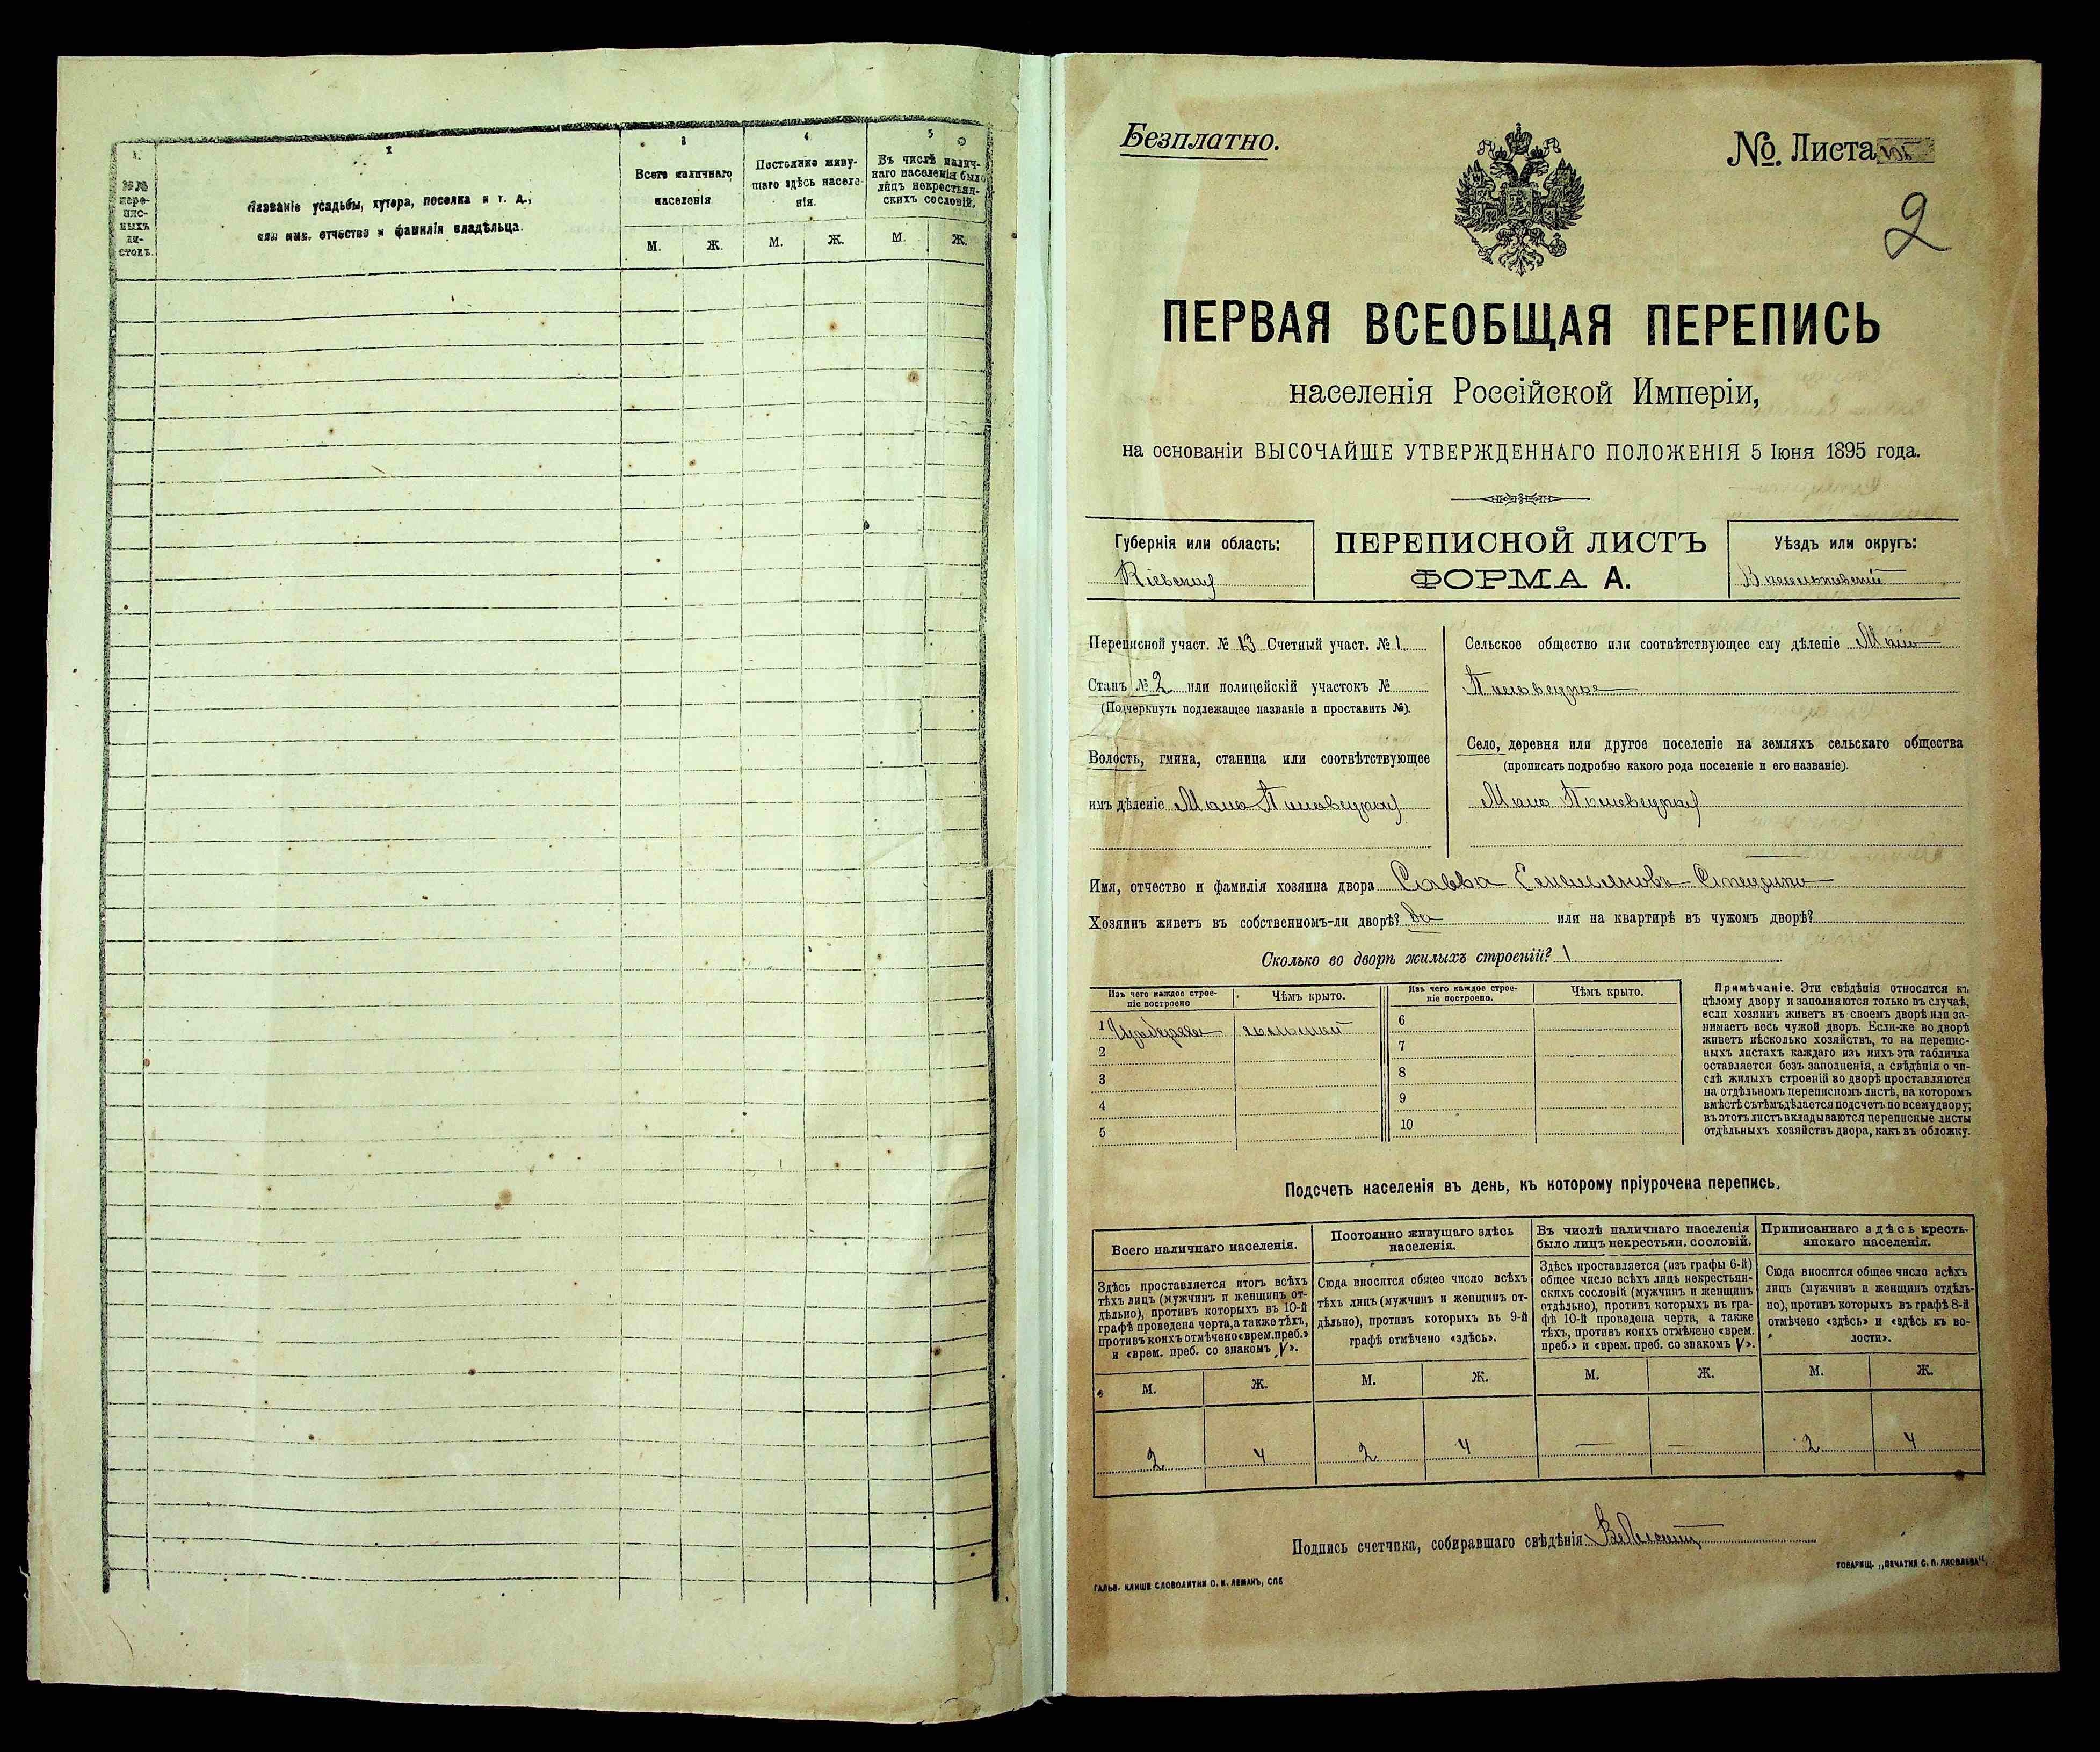 1.
2
3
4
5
№№ пере-
пис-
ныхъ
ли-
стовъ.
Названіе усадьбы, хутора, поселка и т. д.,
или имя, отчество и фамилія владѣльца.
Всего наличнаго
населенія
Постоянно живу-
щаго здѣсь населе-
нія.
Въ числѣ налич-
наго населенія было
лицъ некрестьян-
скихъ сословій.
М. Ж. М. Ж. М. Ж.
Безплатно.
№. Листа
2
ПЕРВАЯ ВСЕОБЩАЯ ПЕРЕПИСЬ
населенія Россійской Имперіи,
на основаніи ВЫСОЧАЙШЕ УТВЕРЖДЕННАГО ПОЛОЖЕНІЯ 5 Іюня 1895 года.
Губернія или область:
Кіевская
ПЕРЕПИСНОЙ ЛИСТЪ
ФОРМА А.
Уѣздъ или округъ:
Васильковскій
Переписной участ. № 13 Счетный участ. № 1
Станъ № 2 или полицейскій участокъ №
(Подчеркнуть подлежащее названіе и проставить №).
Волость, гмина, станица или соотвѣтствующее
имъ дѣленіе Мало Половецкая
Сельское общество или соотвѣтствующее ему дѣленіе Мало
Половецкое
Село, деревня или другое поселеніе на земляхъ сельскаго общества
(прописать подробно какого рода поселеніе и его названіе).
Мало Половецкая
Имя, отчество и фамилія хозяина двора Савва Емельяновъ
Хозяинъ живетъ въ собственномъ-ли дворѣ? Да или на квартирѣ въ чужомъ дворѣ?
Сколько во дворѣ жилыхъ строеній? 1
Изъ чего каждое строе-
ніе построено
Чѣмъ крыто.
Изъ чего каждое строе-
ніе построено.
Чѣмъ крыто.
1 Изъ дерева соломой
2
3
4
5
6
7
8
9
10
Примѣчаніе. Эти свѣдѣнія относятся къ
цѣлому двору и заполняются только въ случаѣ,
если хозяинъ живетъ въ своемъ дворѣ или за-
нимаетъ весь чужой дворъ. Если-же во дворѣ
живетъ нѣсколько хозяйствъ, то на перепис-
ныхъ листахъ каждаго изъ нихъ эта табличка
оставляется безъ заполненія, а свѣдѣнія о чи-
слѣ жилыхъ строеній во дворѣ проставляются
на отдѣльномъ переписномъ листѣ, на которомъ
вмѣстѣ съ тѣмъ дѣлается подсчетъ по всему двору;
въ этотъ листъ вкладываются переписные листы
отдѣльныхъ хозяйствъ двора, какъ въ обложку.
Подсчетъ населенія въ день, къ которому пріурочена перепись.
Всего наличнаго населенія.
Постоянно живущаго здѣсь
населенія.
Въ числѣ наличнаго населенія
было лицъ некрестьян. сословій.
Приписаннаго здѣсь кресть-
янскаго населенія.
Здѣсь проставляется итогъ всѣхъ
тѣхъ лицъ (мужчинъ и женщинъ от-
дѣльно), противъ которыхъ въ 10-й
графѣ проведена черта, а также тѣхъ,
противъ коихъ отмѣчено «врем. преб.»
и «врем. преб. со знакомъ V».
Сюда вносится общее число всѣхъ
тѣхъ лицъ (мужчинъ и женщинъ от-
дѣльно), противъ которыхъ въ 9-й
графѣ отмѣчено «здѣсь».
Здѣсь проставляется (изъ графы 6-й)
общее число всѣхъ лицъ некрестьян-
скихъ сословій (мужчинъ и женщинъ
отдѣльно), противъ которыхъ въ гра-
фѣ 10-й проведена черта, а также
тѣхъ, противъ коихъ отмѣчено «врем.
преб.» и «врем. преб. со знакомъ V».
Сюда вносится общее число всѣхъ
лицъ (мужчинъ и женщинъ отдѣль-
но), противъ которыхъ въ графѣ 8-й
отмѣчено «здѣсь» и «здѣсь къ во-
лости».
М. Ж. М. Ж. М. Ж. М. Ж.
2 4 2 4 — — 2 4
Подпись счетчика, собиравшаго свѣдѣнія
ГАЛЬВ. КЛИШЕ СЛОВОЛИТНИ О. И. ЛЕМАНЪ, СПБ
ТОВАРИЩ. „ПЕЧАТНЯ С. П. ЯКОВЛЕВА“.